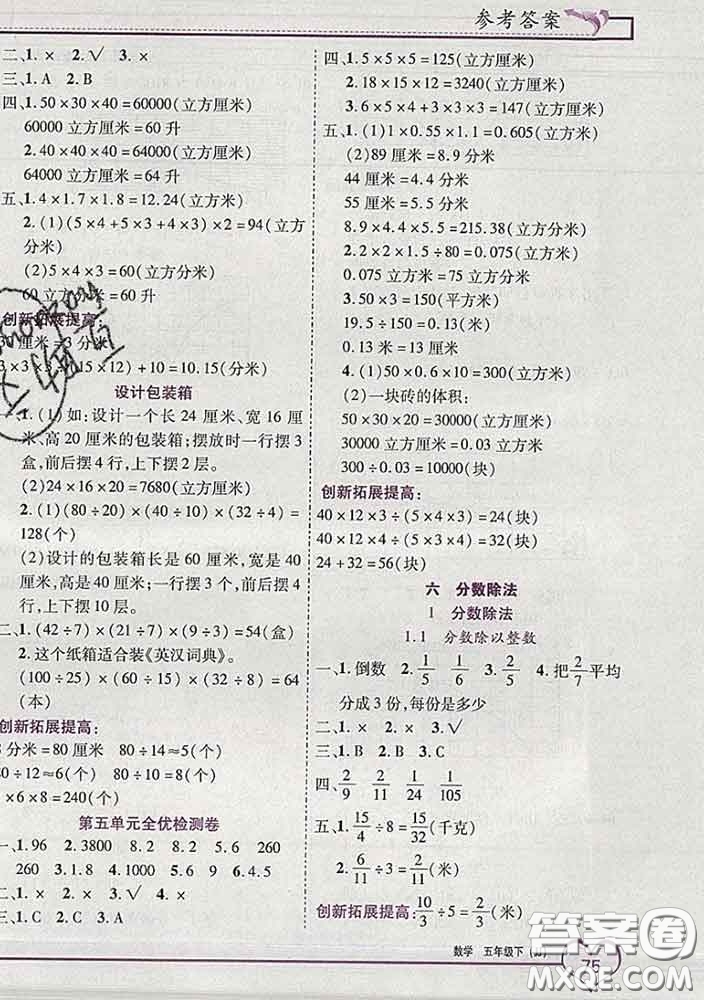 参考答案
二、1.× 2.√ 3.×
三、1.A 2.B
四、1.50×30×40=60000(立方厘米)
60000 立方厘米=60 升
2.40×40×40=64000(立方厘米)
64000 立方厘米=64 升
五、1.4×1.7×1.8=12.24(立方米)
2.(1)(5×4+5×3+4×3)×2=94(立方
分米)
(2)5×4×3=60(立方分米)
60 立方分米=60 升
创新拓展提高:
厘米=3 分米
3×3×3÷(15×12)+10=10.15(分米)
设计包装箱
1.(1)如:设计一个长 24 厘米、宽 16 厘
米、高 20 厘米的包装箱;摆放时一行摆 3
盒,前后摆 4 行,上下摆 2 层。
(2)24×16×20=7680(立方厘米)
2.(1)(80÷20)×(80÷10)×(32÷4)=
128(个)
(2)设计的包装箱长是 60 厘米,宽是 40
厘米,高是 40 厘米;一行摆 3 个,前后摆 4
行,上下摆 10 层。
二、1.(42÷7)×(21÷7)×(9÷3)=54(盒)
2.这个纸箱适合装《英汉词典》。
(100÷25)×(60÷15)×(32÷8)=64
(本)
创新拓展提高:
分米=80 厘米 80÷14≈5(个)
80÷12≈6(个) 80÷10=8(个)
×6×8=240(个)
第五单元全优检测卷
一、1.96 2.3800 8.2 8.2 5.2 260
260 3.1.8 4.1500 5.72 6.60
二、1.× 2.× 3.√ 4.×
三、1.C 2.C 3.A
四、1.5×5×5=125(立方厘米)
2.18×15×12=3240(立方厘米)
3.6×5×4+3×3×3=147(立方厘米)
五、1.(1)1×0.55×1.1=0.605(立方米)
(2)89 厘米=8.9 分米
44 厘米=4.4 分米
55 厘米=5.5 分米
8.9×4.4×5.5=215.38(立方分米)
2.2×2×1.5÷80=0.075(立方米)
0.075 立方米=75 立方分米
3.50×3=150(平方米)
19.5÷150=0.13(米)
0.13 米=13 厘米
4.(1)50×0.6×10=300(立方米)
(2)一块砖的体积:
50×30×20=30000(立方厘米)
30000 立方厘米=0.03 立方米
300÷0.03=10000(块)
创新拓展提高:
40×12×3÷(5×4×3)=24(块)
40×12×4÷(5×3×4)=32(块)
24+32=56(块)
六 分数除法
1 分数除法
1.1 分数除以整数
一、1.倒数 2.1/5 1/6 3.2/5 4.把2/7平均
分成 3 份,每份是多少
二、1.× 2.× 3.√
三、1.B 2.B 3.C
四、2/9 2/11 1/24 1/105
五、1.15/4÷8=15/32(千克)
2.6/11÷3=2/11(米)
创新拓展提高:10/3÷5=2/3(米)
数学 五年级下(JJ)
75
答案圈
MXQE.COM